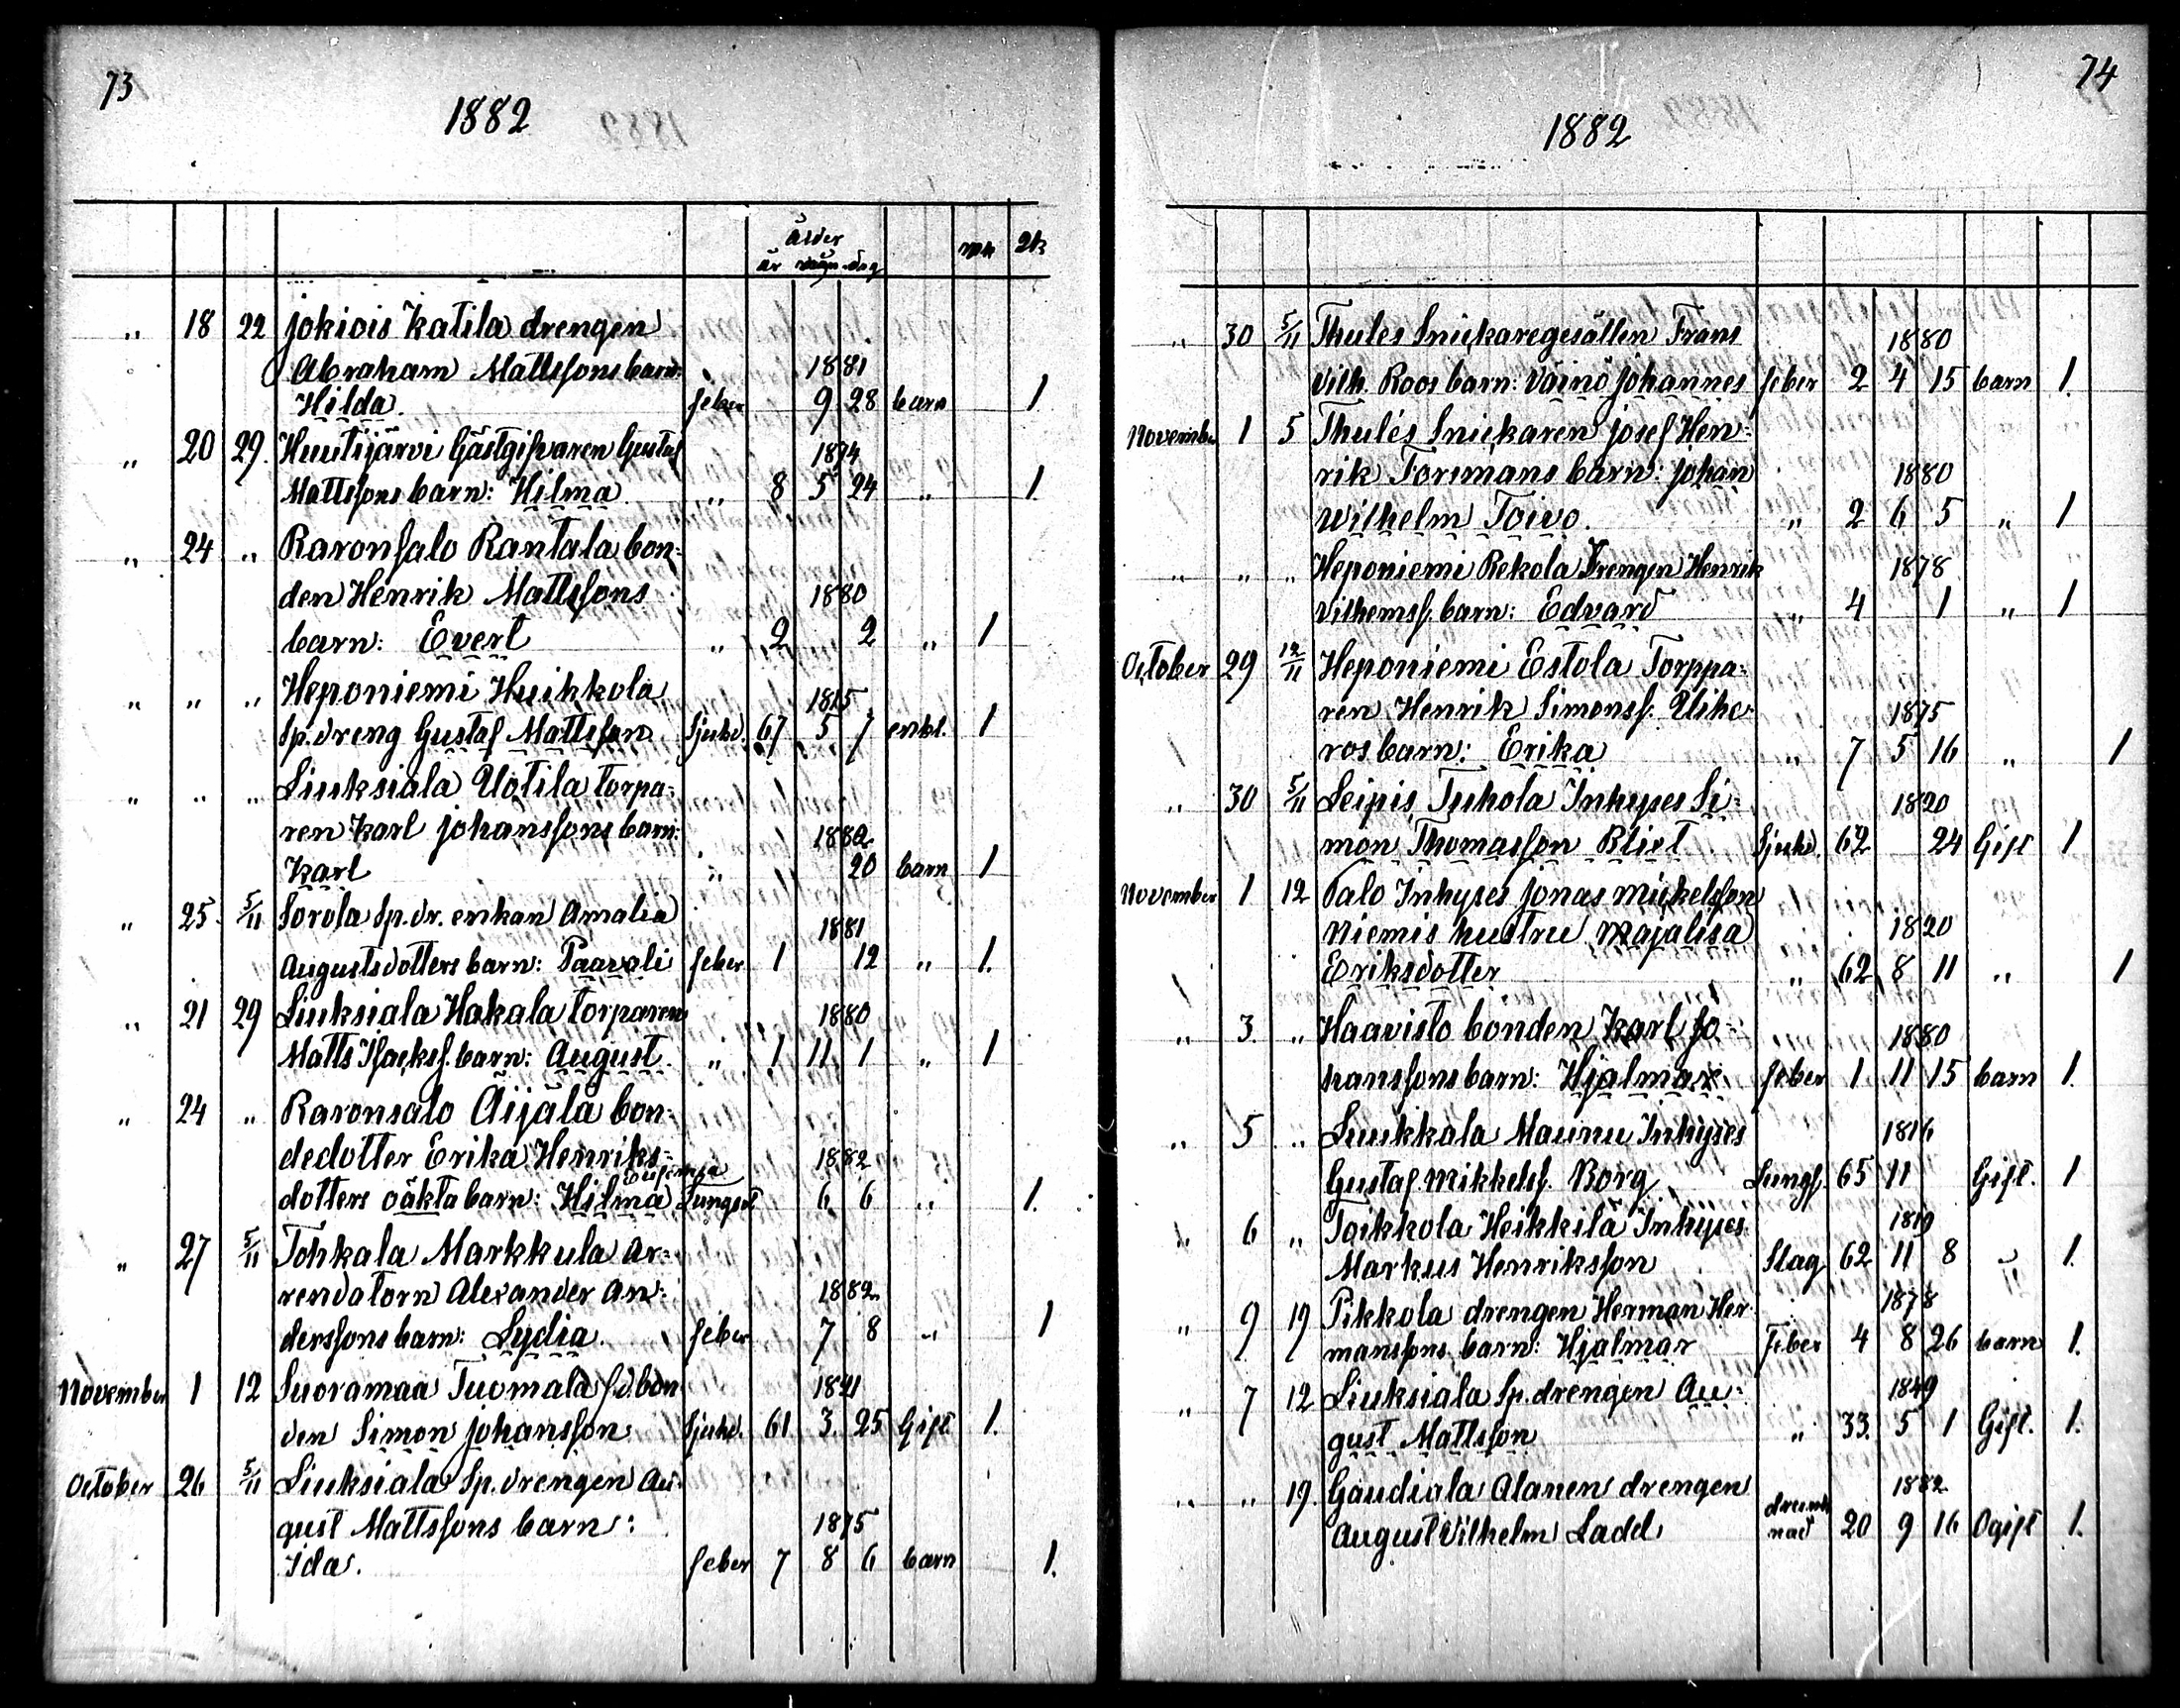 73
1882
ålder
år mån dag mk qk
„ 18 22 Jokiois Katila drengen
Abraham Mattssons barn: 1881
Hilda. feber 9 28 barn 1
„ 20 29. Huutijärvi Gästgifvaren Gustaf 1874
Mattssons barn: Hilma „ 8 5 24 „ 1
„ 24 „ Raronsalo Rantala bon-
den Henrik Mattssons 1880
barn: Evert „ 2 2 „ 1
„ „ „ Heponiemi Huikkola 1815
Sp. dreng Gustaf Mattsson Sjukd. 67 5 7 enkl. 1
„ „ „ Liuksiala Uotila torpa-
ren Karl Johanssons barn: 1882
Karl „ 20 barn 1
„ 25 5/11 Sorola Sp. dr. enkan Amalia 1881
Augustsdotters barn: Paavali feber 1 12 „ 1.
„ 21 29 Liuksiala Hakala torparen 1880
Matts Isacks. barn: August „ 1 11 1 „ 1
„ 24 „ Raronsalo Äijälä bon-
dedotter Erika Henriks- 1882
dotters oäkta barn: Hilma Lungsot 6 6 „ 1.
„ 27 5/11 Tohkala Markkula Ar-
rendatorn Alexander An- 1882
derssons barn: Lydia. feber 7 8 „ 1
November 1 12 Suoramaa Tuomala f.d. bon 1821
den Simon Johansson Sjukd. 61 3 25 Gift 1.
October 26 5/11 Liuksiala Sp. drengen Au-
gust Mattssons barn: 1875
Ida. feber 7 8 6 barn 1.
74
1882
„ 30 5/11 Thules Snickaregesällen Frans 1880
Vilh. Roos barn: Väinö Johannes feber 2 4 15 barn 1.
November 1 5 Thulés Snickaren Josef Hen-
rik Forsmans barn: Johan 1880
Wilhelm Toivo. „ 2 6 5 „ 1
„ „ „ Heponiemi Rekola Drengen Henrik 1878
Vilhemss. barn: Edvard „ 4 1 „ 1
October 29 12/11 Heponiemi Estola Torppa-
ren Henrik Simonss. Uliha- 1875
ros barn: Erika „ 7 5 16 „ 1
„ 30 5/11 Leipis Tuhola Inhyses Si- 1820
mon Thomasson Blixt Sjukd. 62 24 Gift 1
November 1 12 Palo Inhyses Jonas Mickelsson
Niemis hustru Majalisa 1820
Eriksdotter „ 62 8 11 „ 1
„ 3. „ Haavisto bonden Karl Jo- 1880
hanssons barn: Hjalmar. feber 1 11 15 barn 1.
„ 5 „ Liuukkala Maunu Inhyses 1816
Gustaf Mikkelss. Borg Lungs. 65 11 Gift. 1
„ 6 „ Toikkola Heikkilä Inhyses 1819
Markus Henriksson Slag 62 11 8 „ 1.
„ 9 19 Pikkola drengen Herman Her- 1878
manssons barn: Hjalmar Feber 4 8 26 barn 1.
„ 7 12 Liuksiala Sp. drengen Au- 1849
gust Mattsson „ 33. 5 1 Gift. 1.
„ „ 19. Gaudiala Alanen drengen 1882
August Vilhelm Ladd 20 9 16 Ogift 1.